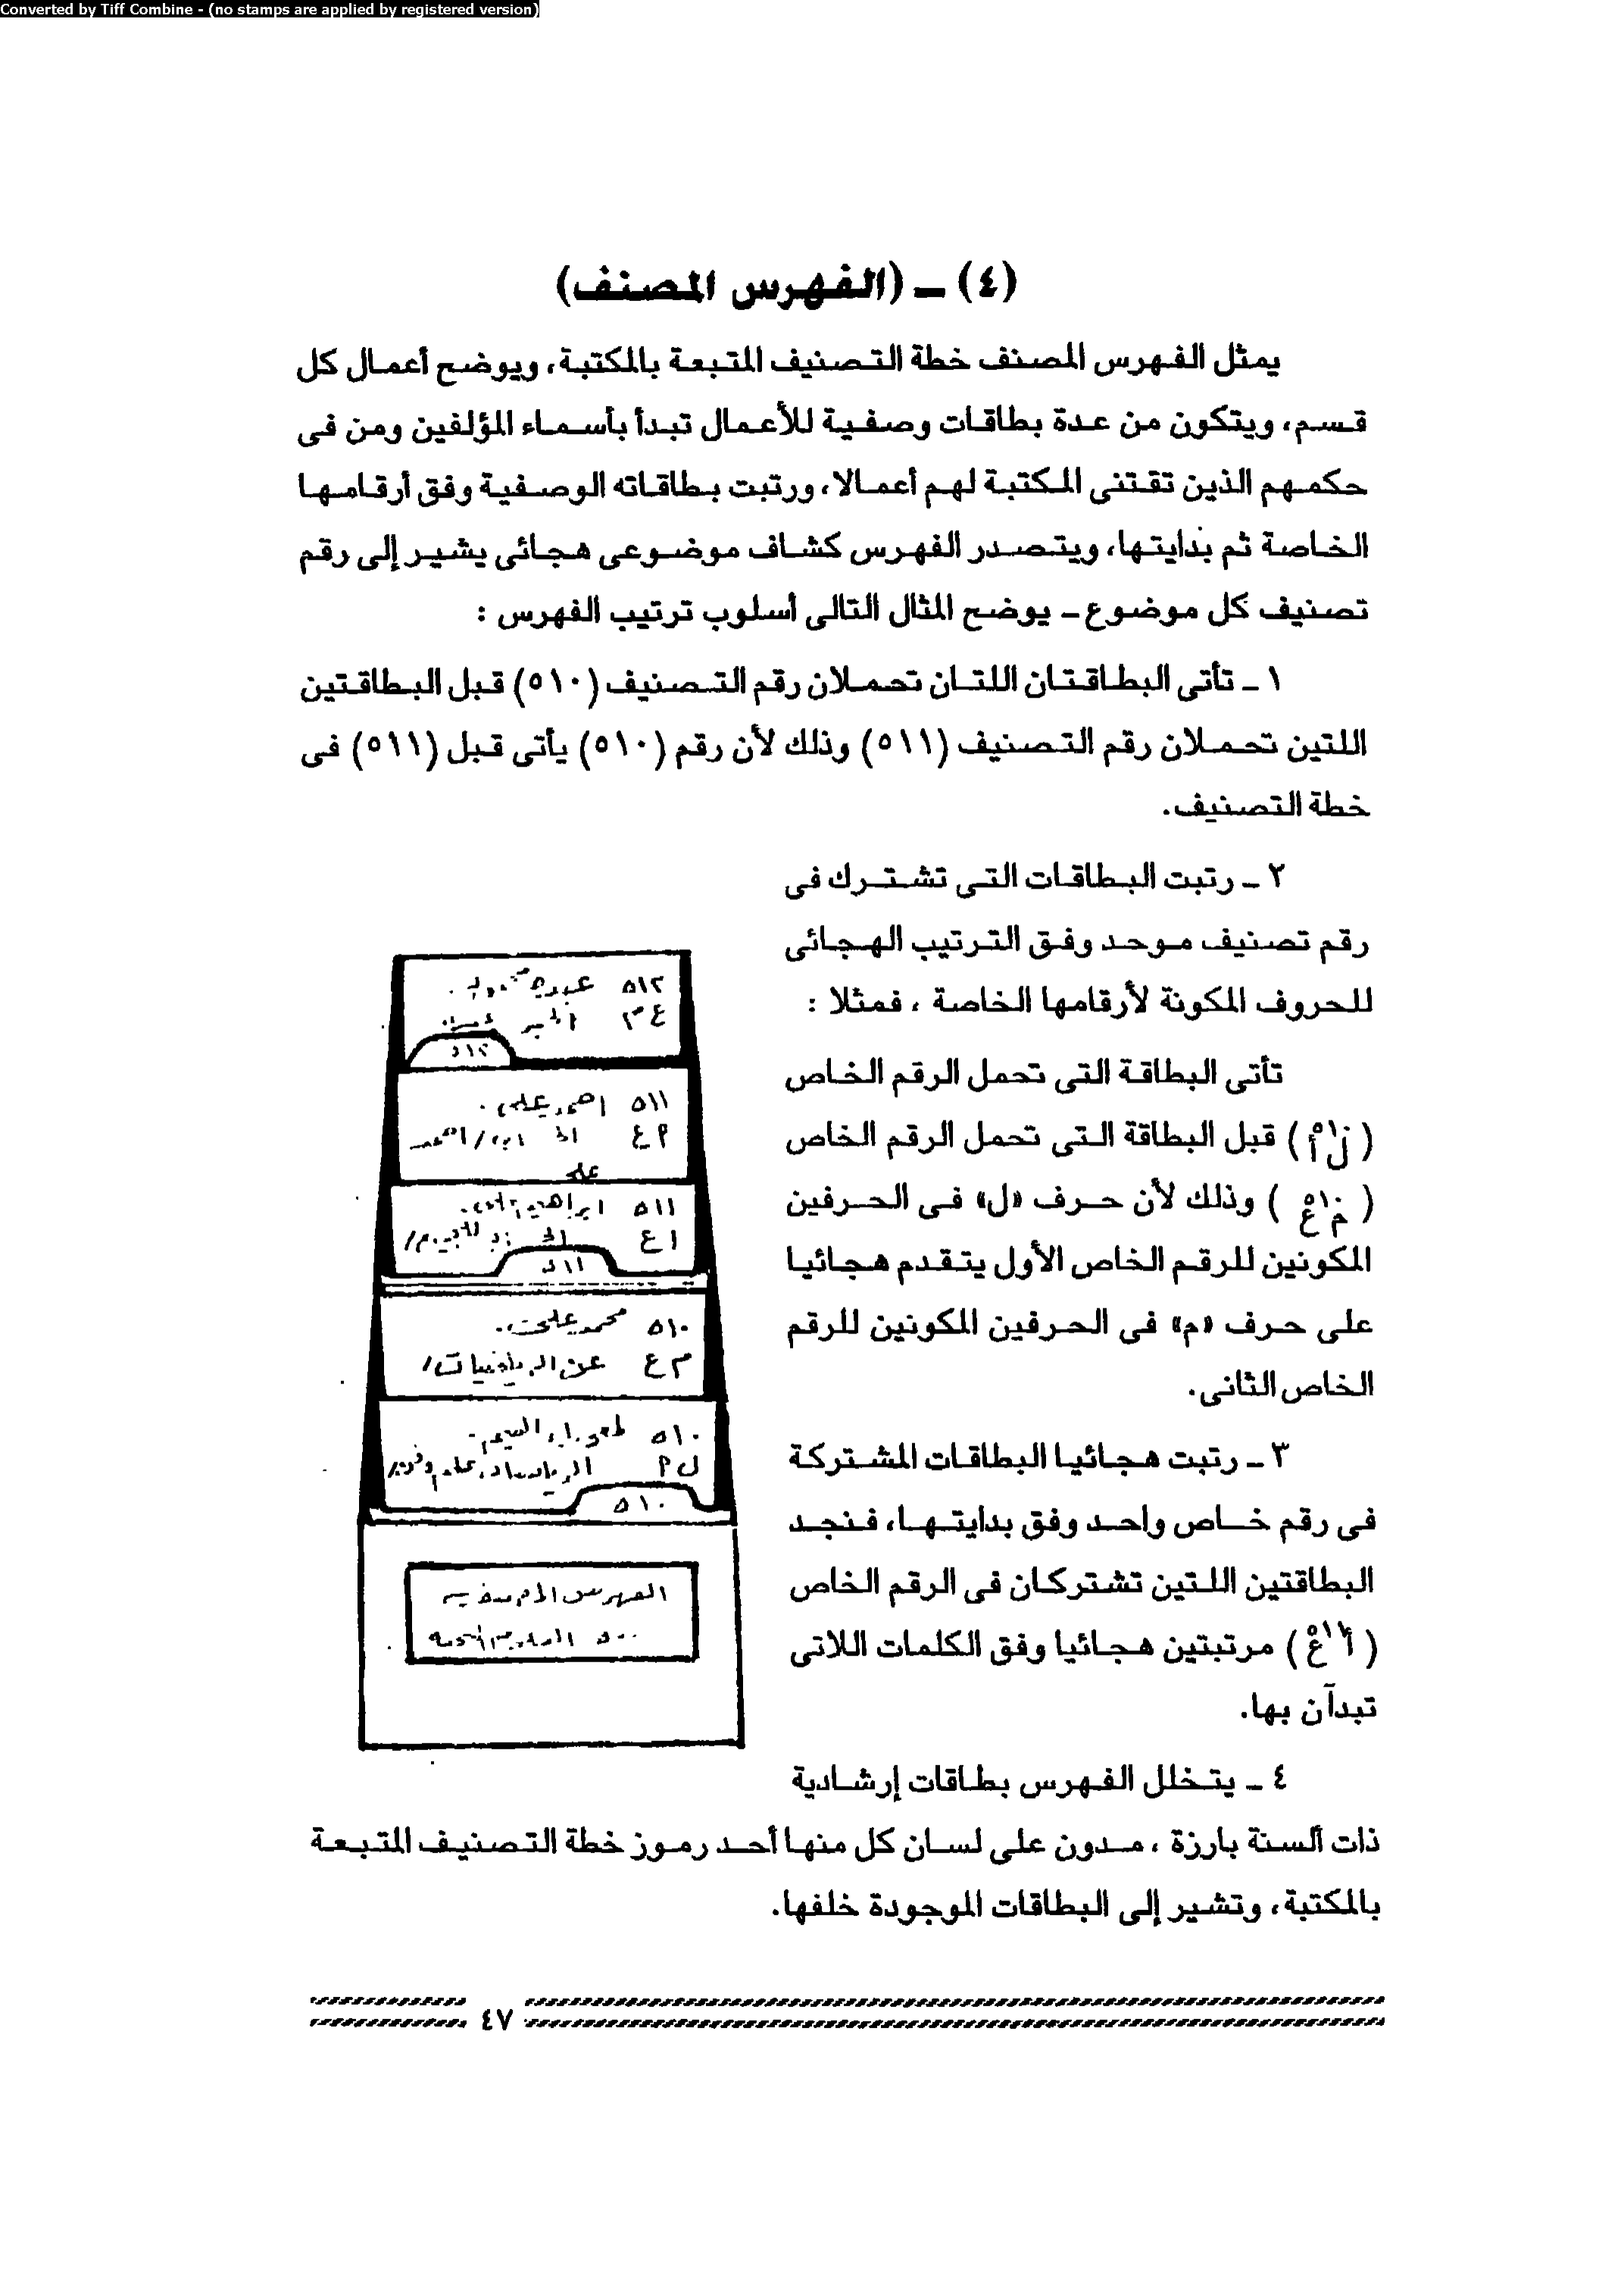 Converted by Tiff Combine - (no stamps are applied by registered version)
(٤) ـ (الفهرس المصنف)
يمثل الفهرس المصنف خطة التصنيف المتبعة بالمكتبة، ويوضح أعمال كل
قسم، ويتكون من عدة بطاقات وصفية للأعمال تبدأ بأسماء المؤلفين ومن فى
حكمهم الذين تقتنى المكتبة لهم أعمالا، ورتبت بطاقاته الوصفية وفق أرقامها
الخاصة ثم بدايتها، ويتصدر الفهرس كشاف موضوعى هجائى يشير إلى رقم
تصنيف كل موضوع ـ يوضح المثال التالى أسلوب ترتيب الفهرس :
١ ـ تأتى البطاقتان اللتان تحملان رقم التصنيف (٥١٠) قبل البطاقتين
اللتين تحملان رقم التصنيف (٥١١) وذلك لأن رقم (٥١٠) يأتى قبل (٥١١) فى
خطة التصنيف.
٢ ـ رتبت البطاقات التى تشترك فى
رقم تصنيف موحد وفق الترتيب الهجائى
للحروف المكونة لأرقامها الخاصة ، فمثلا :
تأتى البطاقة التى تحمل الرقم الخاص
(٥١٠ ل أ) قبل البطاقة التى تحمل الرقم الخاص
(٥١٠ م ع) وذلك لأن حرف «ل» فى الحرفين
المكونين للرقم الخاص الأول يتقدم هجائيا
على حرف «م» فى الحرفين المكونين للرقم
الخاص الثانى.
٣ ـ رتبت هجائيا البطاقات المشتركة
فى رقم خاص واحد وفق بدايتها، فنجد
البطاقتين اللتين تشتركان فى الرقم الخاص
(٥١١ أ ع) مرتبتين هجائيا وفق الكلمات اللاتى
تبدآن بها.
٤ ـ يتخلل الفهرس بطاقات إرشادية
ذات ألسنة بارزة ، مدون على لسان كل منها أحد رموز خطة التصنيف المتبعة
بالمكتبة، وتشير إلى البطاقات الموجودة خلفها.
٥١٢
ع م
٥١١ احمد على .
٥١١ ابراهيم
ا ع
٥١٠ محمد على
م ع عن الرياضيات/
٥١٠
ل
٥١٠
الفهرس
٤٧